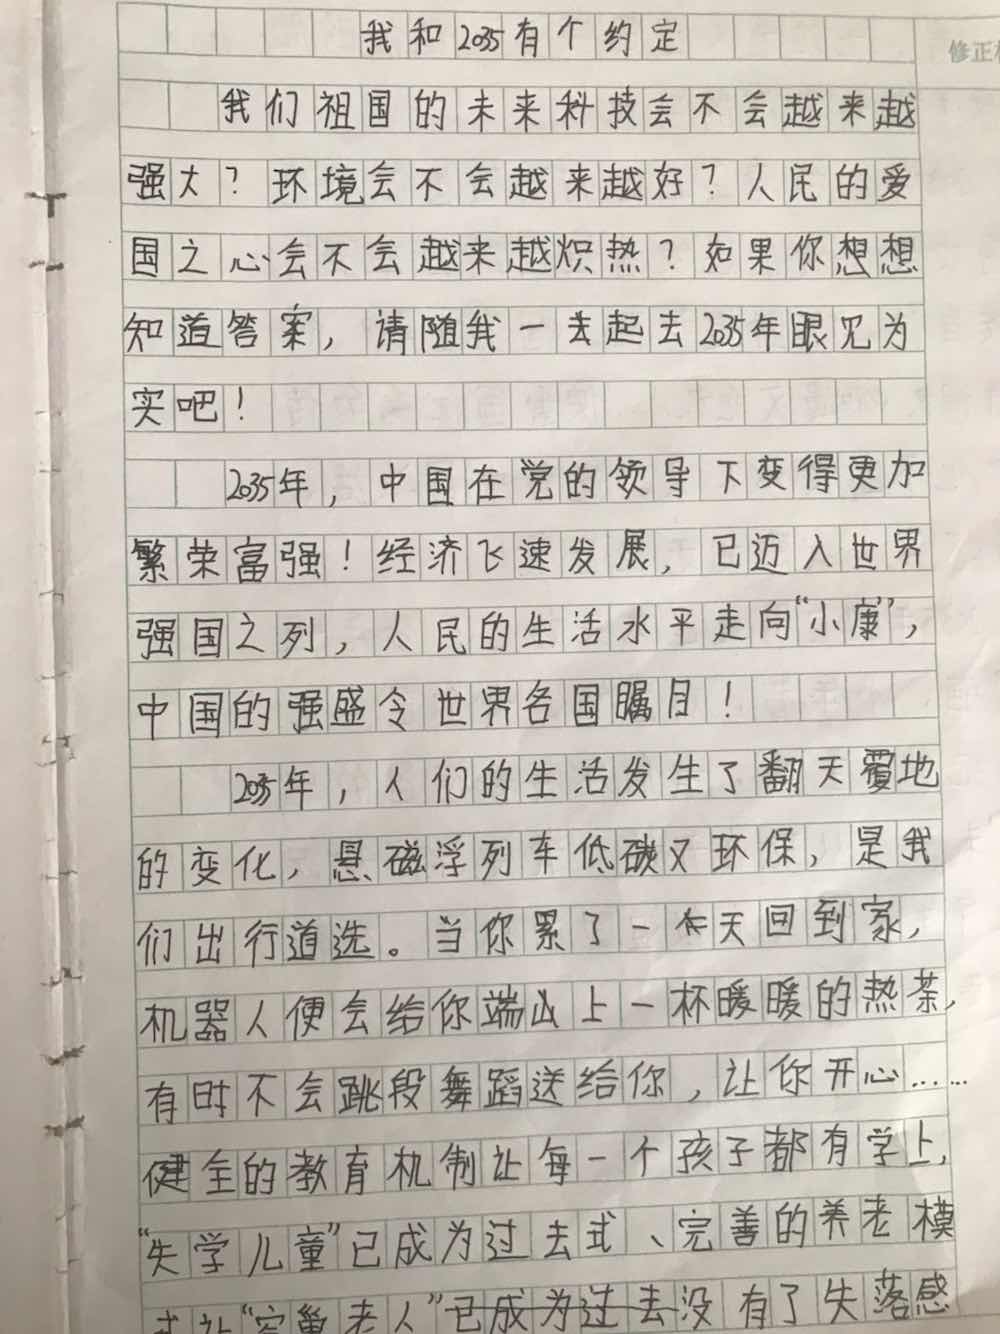 我和2035有个约定
修正
我们祖国的未来科技会不会越来越
强大？环境会不会越来越好？人民的爱
国之心会不会越来越炽热？如果你想想
知道答案，请随我一去起去2035年眼见为
实吧！
2035年，中国在党的领导下变得更加
繁荣富强！经济飞速发展，已迈入世界
强国之列，人民的生活水平走向“小康”，
中国的强盛令世界各国瞩目！
2035年，人们的生活发生了翻天覆地
的变化，悬磁浮列车低碳又环保，是我
们出行道选。当你累了一天回到家，
机器人便会给你端上一杯暖暖的热茶，
有时不会跳段舞蹈送给你，让你开心……
健全的教育机制让每一个孩子都有学上，
“失学儿童”已成为过去式、完善的养老模
式让“空巢老人”已成为过去没有了失落感